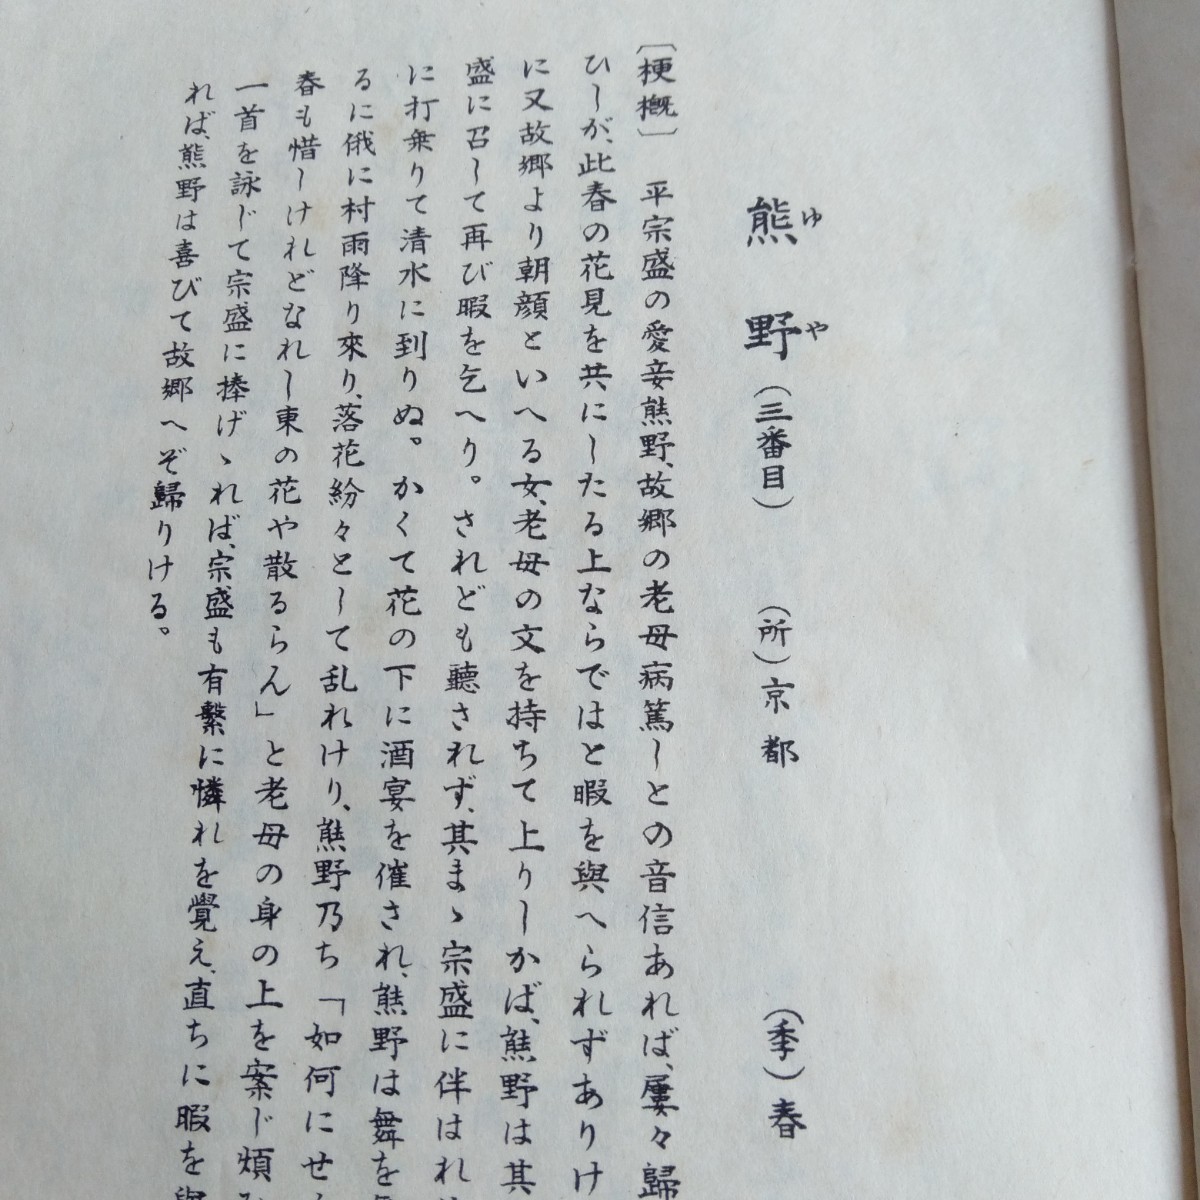 熊野(三番目) (所)京都 (季)春
ゆや
〔梗概〕 平宗盛の愛妾熊野、故郷の老母病篤しとの音信あれば、屢々歸
ひしが、此春の花見を共にしたる上ならではと暇を與へられずありけ
に又故郷より朝顔といへる女、老母の文を持ちて上りしかば、熊野は其
盛に召して再び暇を乞へり。されども聽されず、其まゝ宗盛に伴はれ
に打乗りて清水に到りぬ。かくて花の下に酒宴を催され、熊野は舞を
るに俄に村雨降り來り、落花紛々として乱れけり、熊野乃ち「如何にせ
春も惜しけれどなれし東の花や散るらん」と老母の身の上を案じ煩
一首を詠じて宗盛に捧げゝれば、宗盛も有繋に憐れを覺え、直ちに暇を
れば、熊野は喜びて故郷へぞ歸りける。